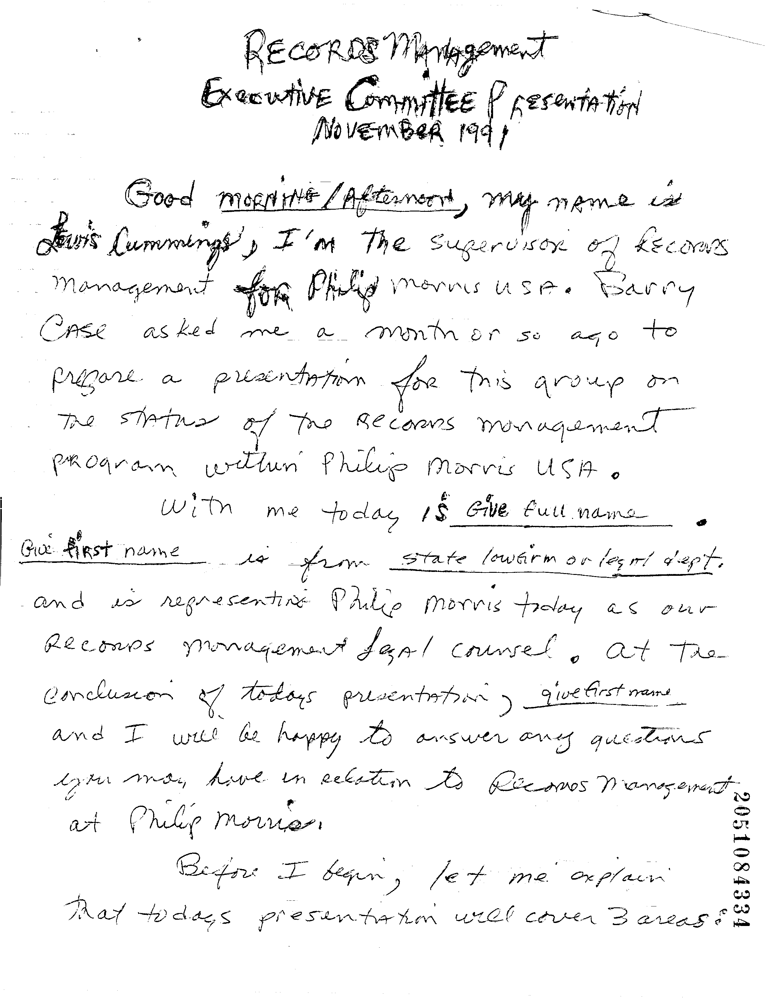 RECORDS Management
Executive Committee Presentation
November 1991
Good morning/Afternoon, my name is
Lewis Cummings, I'm the supervisor of Records
Management for Philip Morris USA. Barry
Case asked me a month or so ago to
prepare a presentation for this group on
the status of the Records management
program within Philip Morris USA.
With me today is Give full name.
Give first name is from state lawfirm or legal dept.
and is representing Philip Morris today as our
Records Management legal counsel. At the
conclusion of todays presentation, give first name
and I will be happy to answer any questions
you may have in relation to Records Management
at Philip Morris.
Before I begin, let me explain
that todays presentation will cover 3 areas:
2051084334